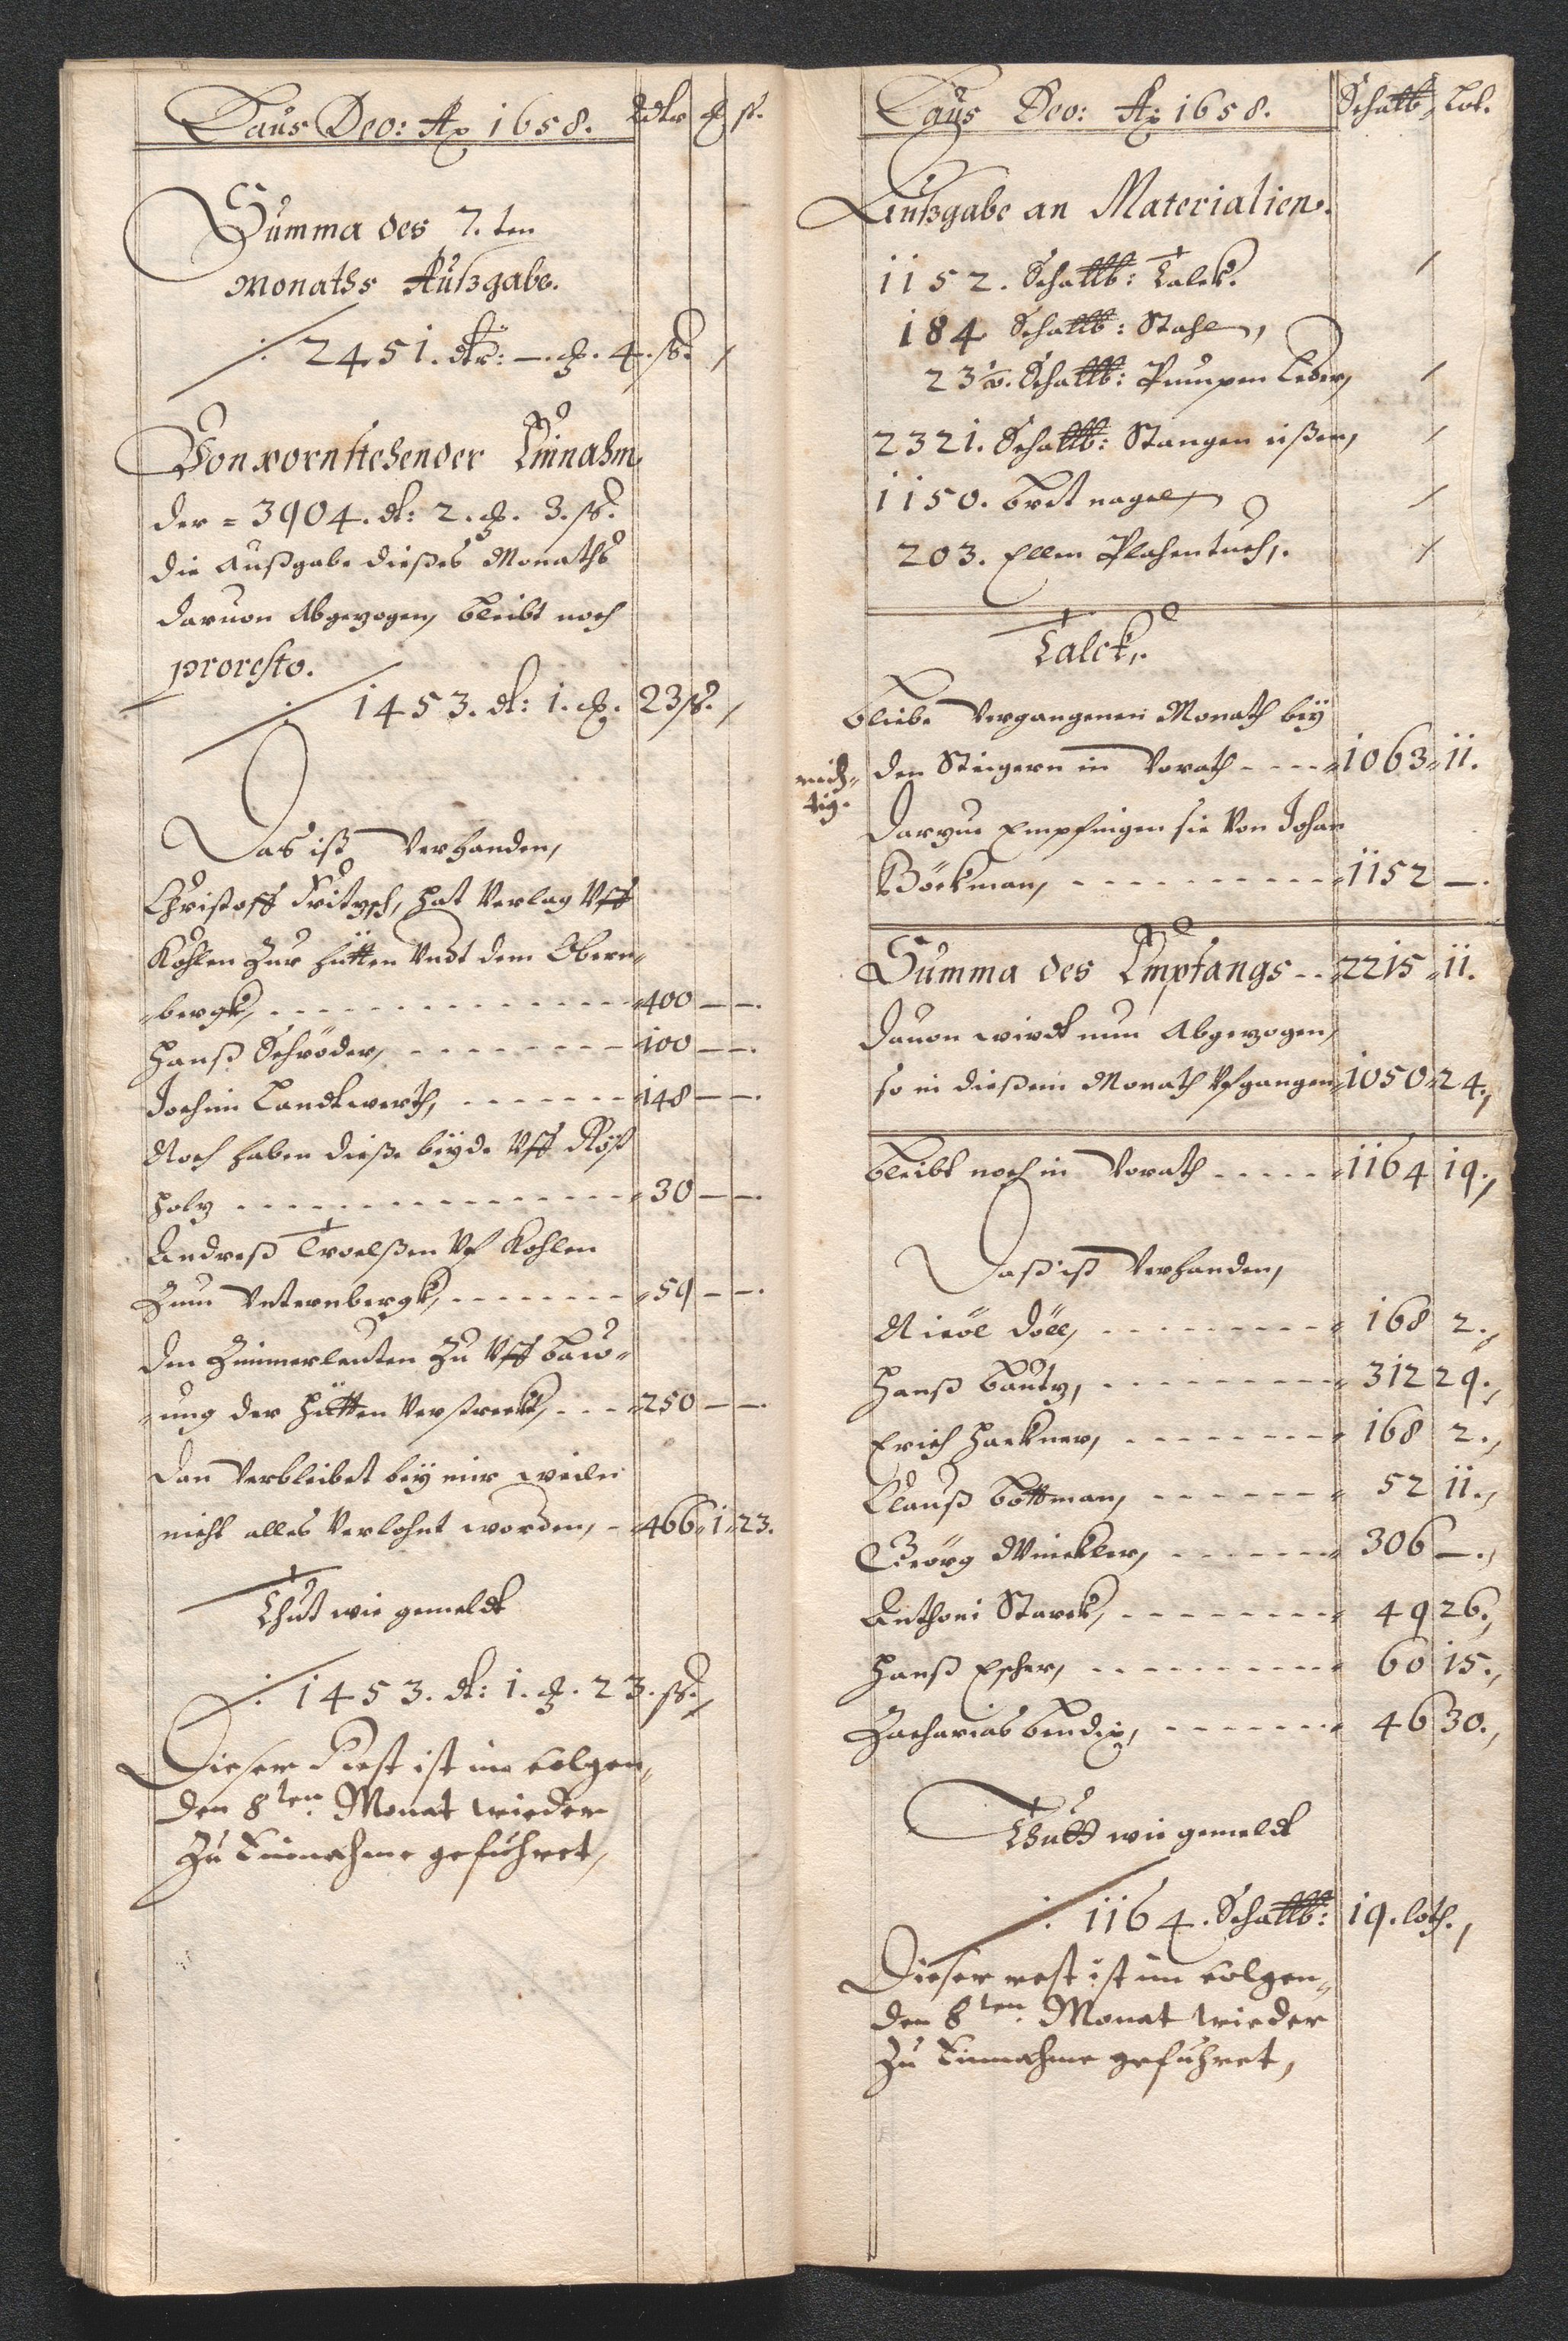 Laus Deo: Ao 1658. Rdlr ß.
Summa des 7.ten
Monaths Außgabe.
2451. dlr: —. 4. ß.
Von vornstehender Einnahm
der = 3904. dl: 2. 3. ß.
die Außgabe dießes Monaths
daruon Abgezogen, bleibt noch
proresto.
1453. dl: 1. 23 ß.
Das ist Verhanden,
Christoff Fritzsch, hat Verlag Vff
Kohlen Zur hütten Vndt dem Obern-
bergk, 400 — —.
Hanß Schröder, 100 — —.
Jochim Landtwerth, 148 — —.
Noch haben dieße beyde Vff Röst
holz 30 — —.
Andreß Troelßen Vf Kohlen
Zum Vnternbergk, 59 — —.
den Zimmerleuten Zu Vff bauw-
ung der hütten Verstreckt, 250 — —.
dan Verbleibet bey mir weiln
nicht alles Verlohnt worden, 466 1 23.
Thut wie gemeldt
1453. dl: 1. 23. ß.
Dieser Rest ist im folgen-
den 8ten Monat wieder
Zu Einnahme geführet,
Laus Deo: Ao 1658. Schallb, Lot.
Außgabe an Materialien.
1152. Schallb: Talck.
184 Schallb: Stahl,
23½. Schallb: Pumpen Leder,
2321. Schallb: Stangen eißen,
1150. bredt nagel,
203. Ellen Plahentuch,.
Talck,.
bliebe Vergangenen Monath bey
den Steigern in Vorath 1063 11.
rich-
tig.
Darzue Empfingen sie Von Johan
Böckman, 1152 —.
Summa des Empfangs 2215 11.
dauon wirdt nun Abgezogen,
so in dießem Monath Vfgangen 1050 24.
bleibt noch in Vorath 1164 19.
Daß ist Verhanden,
Nicöl döll, 168 2.
Hanß bautz, 312 29.
Erich Hackner, 168 2.
Clauß bottman, 52 11.
Geörg Winckler, 306 —.
Anthoni Starck, 49 26.
Hanß Escher, 60 15.
Zacharias bendix, 46 30.
Thutt wie gemeldt
1164. Schallb: 19. loth.
Dieser rest ist im folgen-
den 8ten Monat wieder
Zu Einnahme geführet,